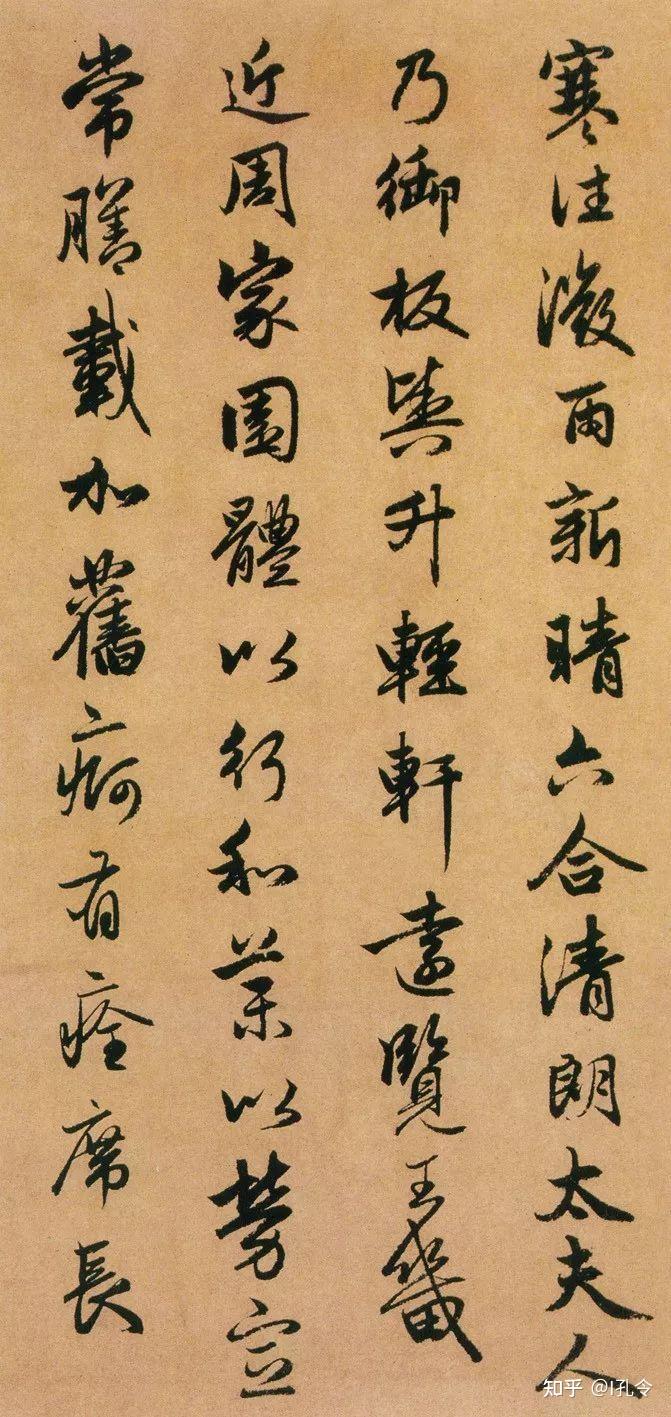 寒往微雨新晴六合清朗太夫人
乃御板輿升輕軒遠覽王畿
近周家園體以行和藥以勞宣
常膳載加舊痾有痊席長
知乎 @I孔令